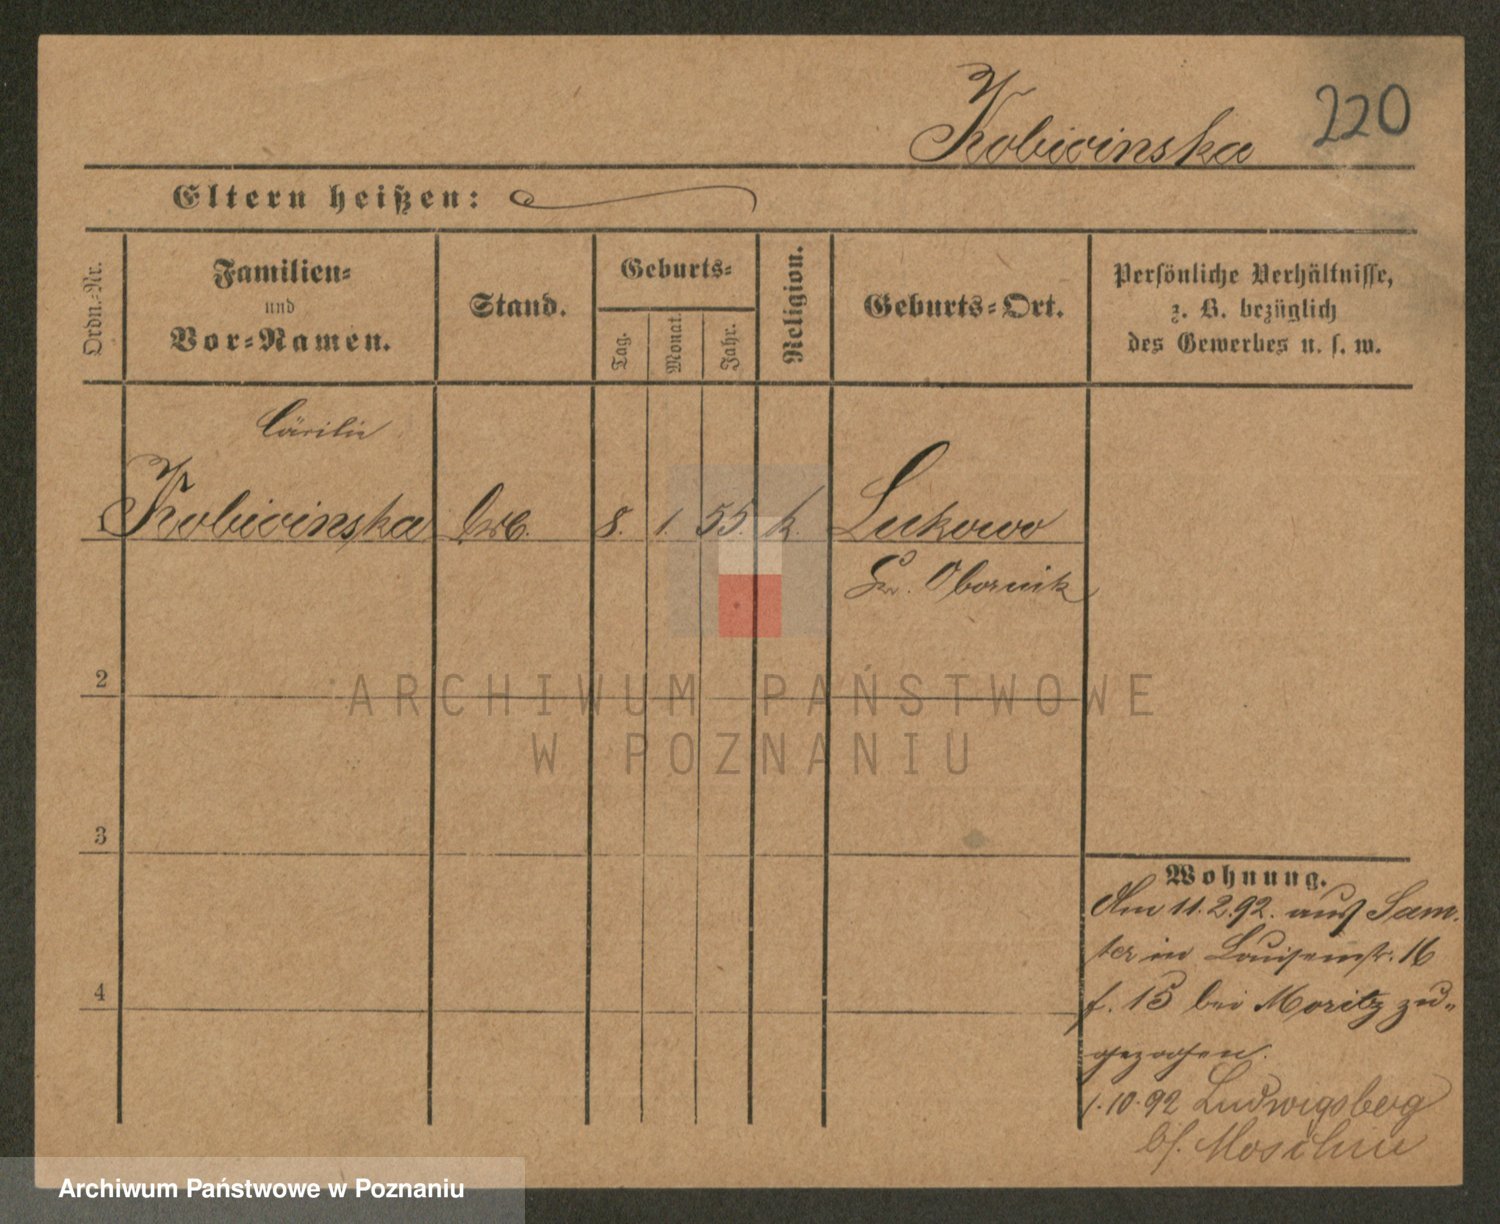 220
Kobicinska
Eltern heißen:
Ordn.-Nr.
Familien-
und
Vor-Namen.
Stand.
Geburts-
Tag.
Monat.
Jahr.
Religion.
Geburts-Ort.
Persönliche Verhältnisse,
z. B. bezüglich
des Gewerbes u. s. w.
Cäcilie
1 Kobicinska 8. 1. 55. k. Lukowo
Kr. Obornik
2
3
4
Wohnung.
Am 11.2.92. aus Sam-
ter in Louisenstr. 16
f. 15 bei Moritz zu-
gezogen.
1.10.92 Ludwigsberg
b/. Moschin
ARCHIWUM PAŃSTWOWE
W POZNANIU
Archiwum Państwowe w Poznaniu